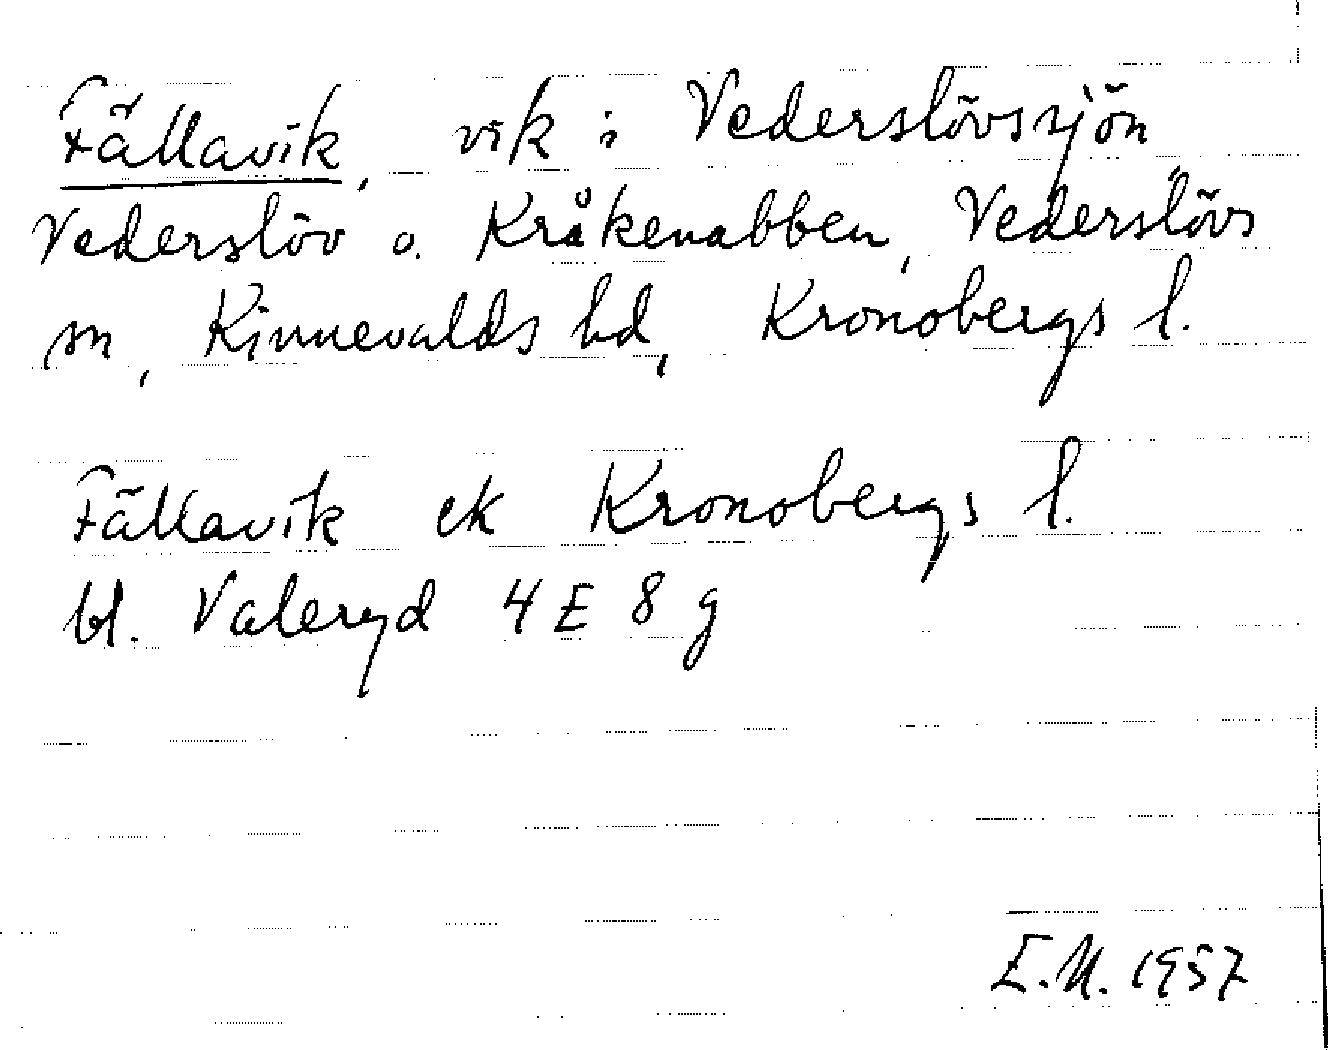 Fällavik, vik i Vederslövssjön,
Vederslöv o. Kråkenabben, Vederslövs
sn, Kinnevalds hd, Kronobergs l.
Fällavik ek Kronobergs l.
bl. Valeryd 4 E 8 g
E.N. 1957